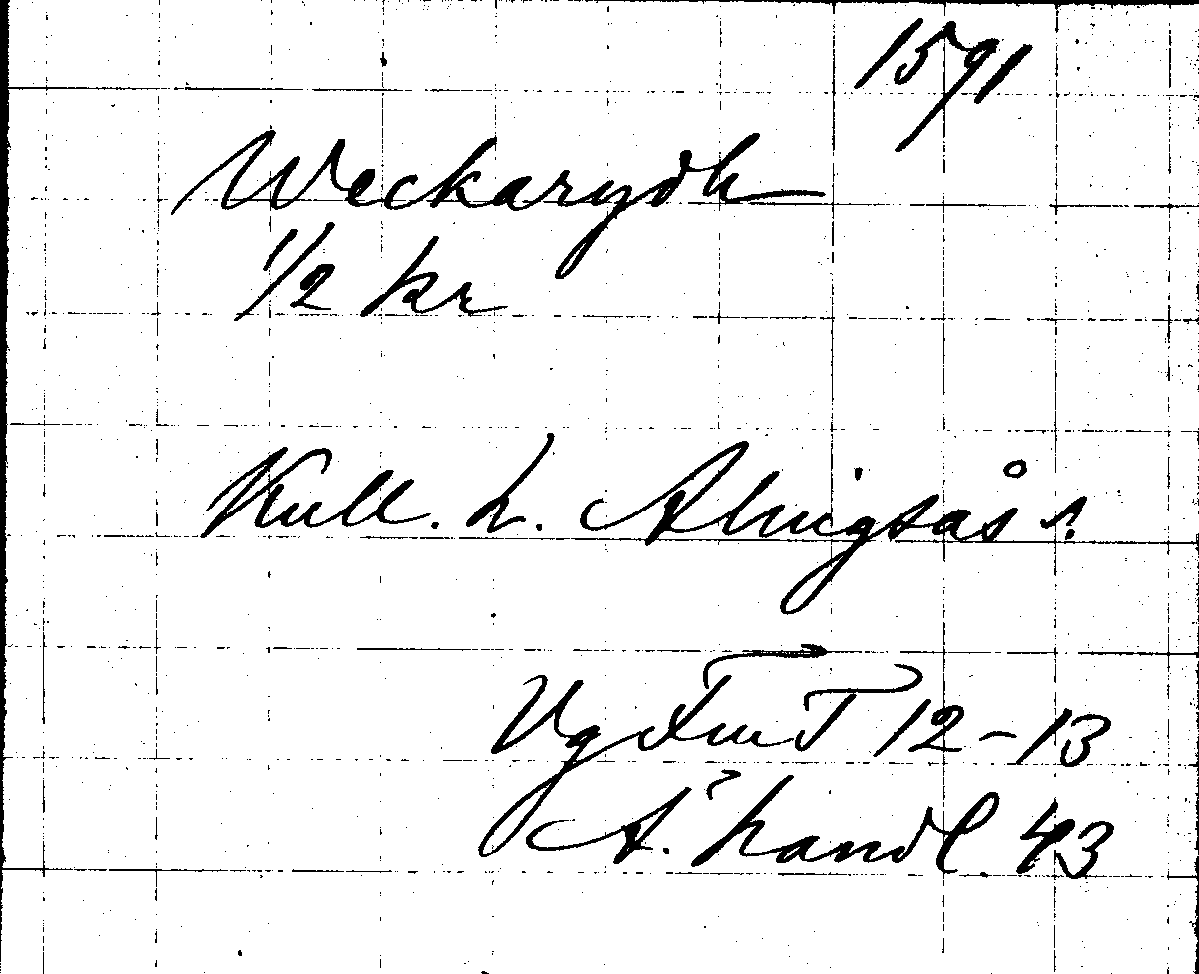 1591
Weckarydh
1/2 kr
Kull. h. Alingsås s.
Vg Fm T 12-13
A. handl. 43